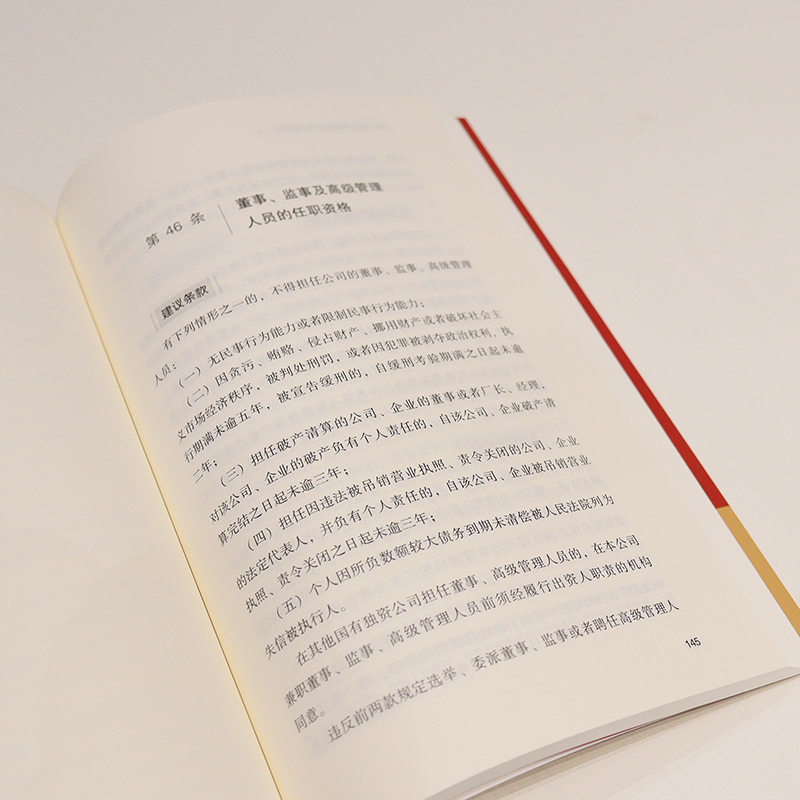 第 46 条
董事、监事及高级管理
人员的任职资格
建议条款
有下列情形之一的，不得担任公司的董事、监事、高级管理
人员：
（一）无民事行为能力或者限制民事行为能力；
（二）因贪污、贿赂、侵占财产、挪用财产或者破坏社会主
义市场经济秩序，被判处刑罚，或者因犯罪被剥夺政治权利，执
行期满未逾五年，被宣告缓刑的，自缓刑考验期满之日起未逾
二年；
（三）担任破产清算的公司、企业的董事或者厂长、经理，
对该公司、企业的破产负有个人责任的，自该公司、企业破产清
算完结之日起未逾三年；
（四）担任因违法被吊销营业执照、责令关闭的公司、企业
的法定代表人，并负有个人责任的，自该公司、企业被吊销营业
执照、责令关闭之日起未逾三年；
（五）个人因所负数额较大债务到期未清偿被人民法院列为
失信被执行人。
在其他国有独资公司担任董事、高级管理人员的，在本公司
兼职董事、监事、高级管理人员前须经履行出资人职责的机构
同意。
违反前两款规定选举、委派董事、监事或者聘任高级管理人
145